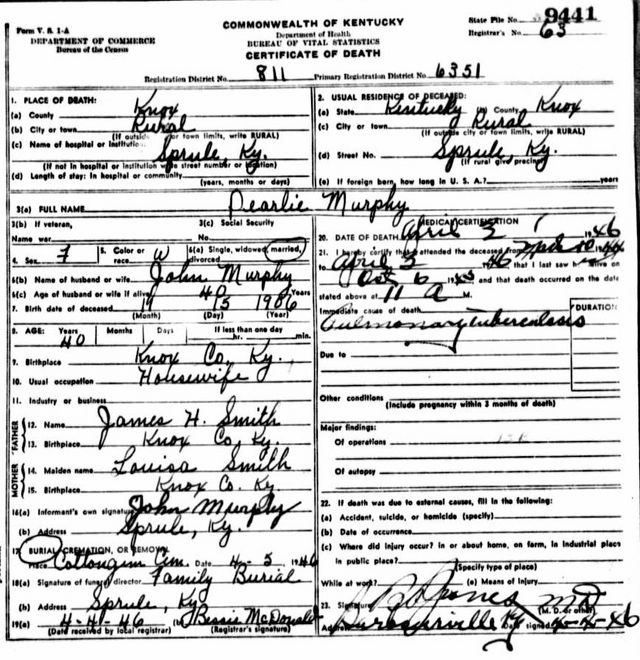 Form V. S. 1-A
DEPARTMENT OF COMMERCE
Bureau of the Census
COMMONWEALTH OF KENTUCKY
Department of Health
BUREAU OF VITAL STATISTICS
CERTIFICATE OF DEATH
State File No. 9441
Registrar's No. 63
Registration District No. 811 Primary Registration District No. 6351
1. PLACE OF DEATH:
(a) County Knox
(b) City or town Rural
(If outside city or town limits, write RURAL)
(c) Name of hospital or institution Sprule, Ky.
(If not in hospital or institution write street number or location)
(d) Length of stay: In hospital or community
(years, months or days)
2. USUAL RESIDENCE OF DECEASED:
(a) State Kentucky (b) County Knox
(c) City or town Rural
(If outside city or town limits, write RURAL)
(d) Street No. Sprule, Ky.
(If rural give precinct)
(e) If foreign born, how long in U. S. A.? years
3(a) FULL NAME Dearlie Murphy
3(b) If veteran,
Name war
3(c) Social Security
No.
4. Sex F 5. Color or race W 6(a) Single, widowed, married, divorced
6(b) Name of husband or wife John Murphy
6(c) Age of husband or wife if alive 40 Years
7. Birth date of deceased 11 15 1906
(Month) (Day) (Year)
8. AGE: Years 40 Months Days If less than one day
hr. min.
9. Birthplace Knox Co, Ky.
10. Usual occupation Housewife
11. Industry or business
FATHER
12. Name James H. Smith
13. Birthplace Knox Co, Ky.
MOTHER
14. Maiden name Louisa Smith
15. Birthplace Knox Co. Ky
16(a) Informant's own signature John Murphy
(b) Address Sprule, Ky.
17. BURIAL, CREMATION, OR REMOVAL
Place Cem. Date 4-5, 1946
18(a) Signature of funeral director Family Burial
(b) Address Sprule, Ky
19(a) 4-41-46 (b) Bessie McDonald
(Date received by local registrar) (Registrar's signature)
MEDICAL CERTIFICATION
20. DATE OF DEATH April 3, 1946
21. I hereby certify that I attended the deceased from
April 3 1946 that I last saw alive on
Oct 6 and that death occurred on the date
stated above at 11 A M.
Immediate cause of death DURATION
Pulmonary tuberculosis
Due to
Other conditions
(Include pregnancy within 3 months of death)
Major findings:
Of operations
Of autopsy
22. If death was due to external causes, fill in the following:
(a) Accident, suicide, or homicide (specify)
(b) Date of occurrence
(c) Where did injury occur? In or about home, on farm, in industrial place
in public place?
(Specify type of place)
While at work? (e) Means of Injury
23. Signature Jones MD
(M. D. or other)
Address Barbourville Ky Date signed 4-4-46